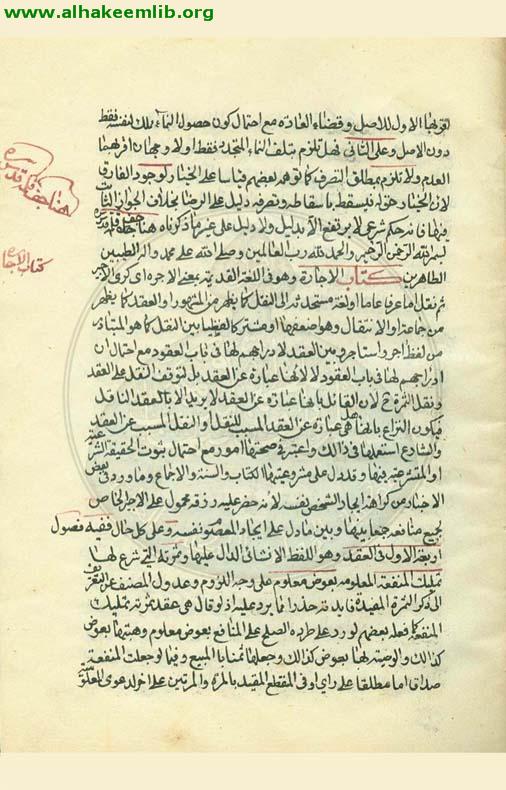 www.alhakeemlib.org
الاول للاصل وقضاء العادة مع احتمال كون حصول النماء بذلك لنفسه فقط
دون الاصل وعلى الثاني فهل تلزم بتلف النماء المتجدد فقط اولا وجهان اقربهما
العدم ولا تلزم بمطلق التصرف كما توهمه بعضهم قياسا على الخيار لوجود الفارق
لان الخيار حق له فيسقط باسقاطه وتصرفه دليل على الرضا بخلاف الجواز الثابت
فيها فانه حكم شرعي لا يرتفع الا بدليل ولا دليل على غير ما ذكرناه هنا
بسم الله الرحمن الرحيم والحمد لله رب العالمين وصلى الله على محمد واله الطيبين
الطاهرين كتاب الاجارة وهو في اللغة القديمة بمعنى الاجرة اي كرى الاجير
ثم نقل اما عرفا عاما او لغة مستحدثة الى النقل كما يظهر من المشهور او العقد كما يظهر
من جماعة او الانتقال وهو اضعفها او مشترك لفظي بين النقل كما هو المتبادر
من لفظ اجر واستاجر وبين العقد لادراجهم لها في باب العقود مع احتمال ان
ادراجهم لها في باب العقود لا لانها عبارة عن العقد بل لتوقف النقل على العقد
ونقل الثمرة ح لان القائل بانها عبارة عن العقد لا يريد الا العقد الناقل
فيكون النزاع بانها هل هي عبارة عن العقد المسبب للنقل او النقل المسبب عن العقد
والشارع استعملها في ذلك واعتبر في صحتها امور مع احتمال ثبوت الحقيقة الشرعية
او المتشرعية فيها وقد دل على مشروعيتها الكتاب والسنة والاجماع وما ورد في بعض
الاخبار من كراهة ايجار الشخص نفسه لانه حضر عليه رزقه محمول على الاجير الخاص
لجميع منافعه جمعا بينها وبين ما دل على ايجار المعصوم نفسه وعلى كل حال ففيه فصول
اربعة الاول في العقد وهو اللفظ الانشائي الدال عليها وثمرته التي شرع لها
تمليك المنفعة المعلومة بعوض معلوم على وجه اللزوم وعدول المصنف عن التعريف
الى ذكر الثمرة المفيدة فايدته حذرا مما يرد عليه اذ لو قال هي عقد ثمرته تمليك
المنفعة كما فعله بعضهم لورد على طرده الصلح على المنافع بعوض معلوم وهبتها بعوض
كذلك والوصية لها بعوض كذلك وجعلها ثمنا بالمبيع وفيما لو جعلت المنفعة
صداقا اما مطلقا على راي او في المقطع المقيد بالمرة والمرتين على اخر
كتاب الاجارة